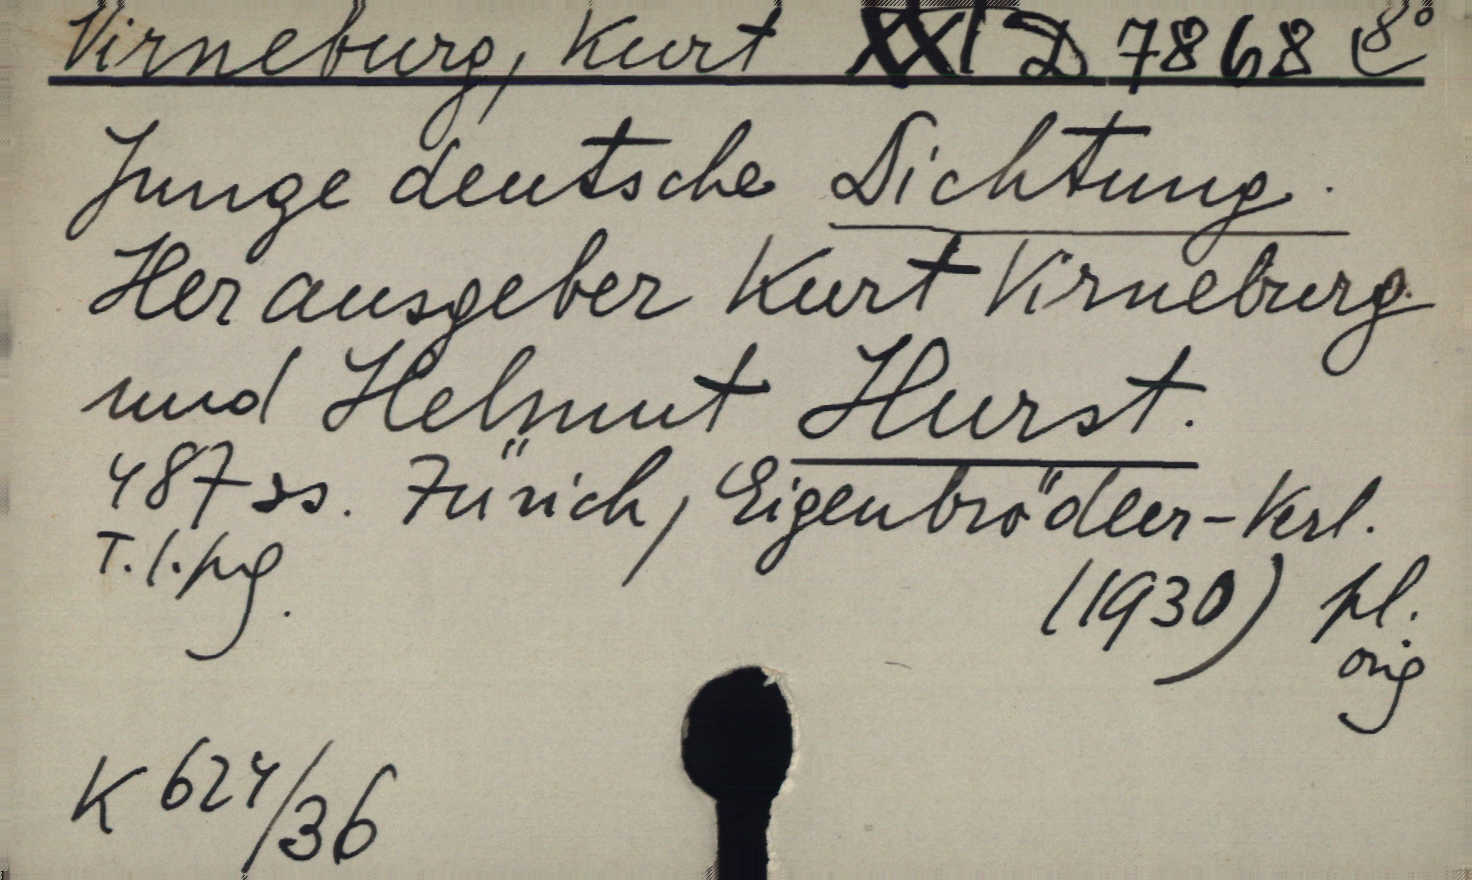 Virneburg, Kurt XXI D 7868 8°
Junge deutsche Dichtung.
Herausgeber Kurt Virneburg
und Helmut Hurst.
487 ss. Zürich, Eigenbrödler-Verl.
T. l. pg. (1930) pl.
orig
K 624/36